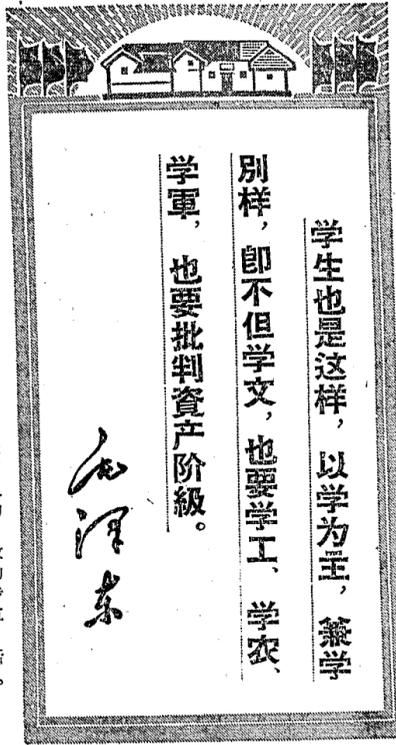 学生也是这样，以学为主，兼学
别样，卽不但学文，也要学工、学农、
学軍，也要批判資产阶級。
毛泽东